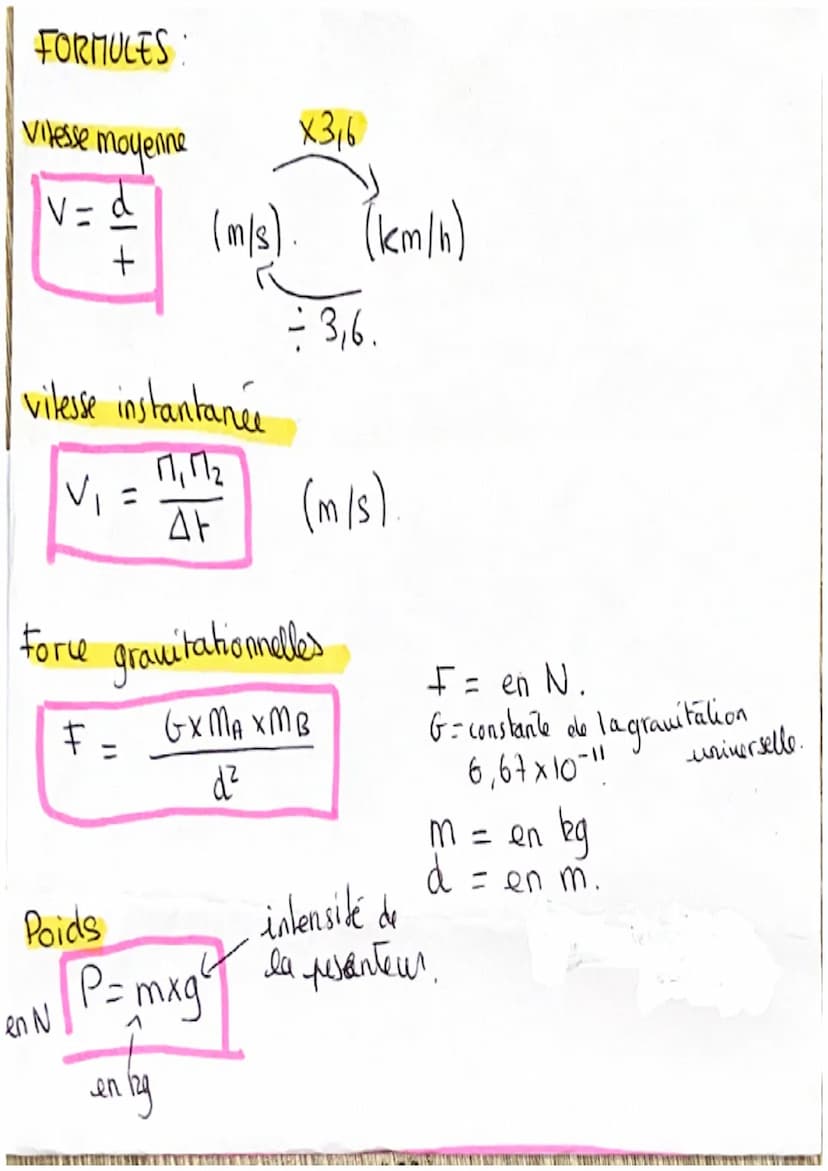 FORMULES :
Vitesse moyenne
x3,6
V = d/t
(m/s). (km/h)
÷ 3,6.
vitesse instantanée
V₁ = M₁M₂/Δt (m/s).
Force gravitationnelles
F = G x mA x mB/d²
F = en N.
G = constante de la gravitation
universelle.
6,67 x 10⁻¹¹.
m = en kg
d = en m.
Poids
intensité de
la pesanteur.
P = mxg
en N
en kg